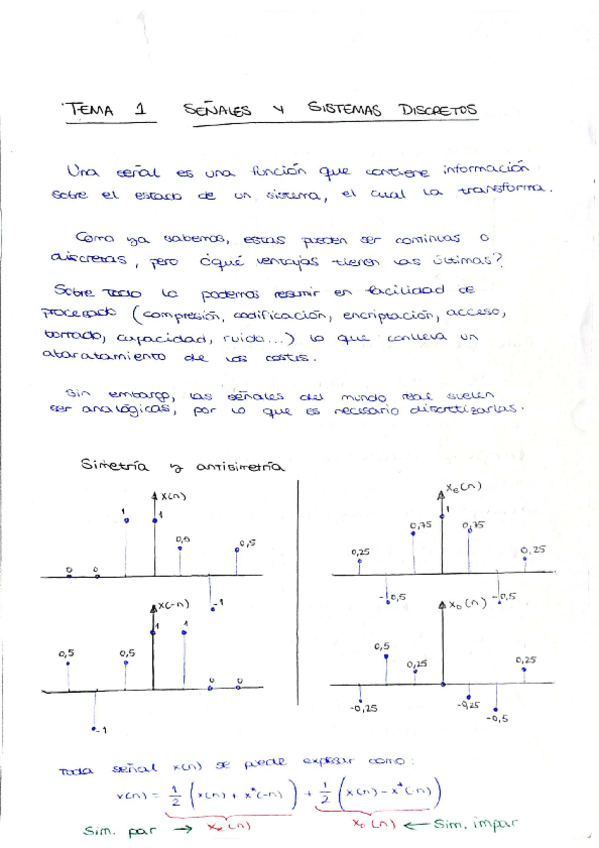 TEMA 1 SEÑALES Y SISTEMAS DISCRETOS
Una señal es una función que contiene información
sobre el estado de un sistema, el cual la transforma.
Como ya sabemos, estas pueden ser continuas o
discretas, pero ¿qué ventajas tienen las últimas?
Sobre todo lo podemos resumir en facilidad de
procesado (compresión, codificación, encriptación, acceso,
borrado, capacidad, ruido...) lo que conlleva un
abaratamiento de los costes.
Sin embargo, las señales del mundo real suelen
ser analógicas, por lo que es necesario discretizarlas.
Simetría y antisimetría
x(n)
1 1
0,5 0,5
0 0
-1
x(-n)
1 1
0,5 0,5
0 0
-1
xe(n)
1
0,75 0,75
0,25 0,25
-0,5 -0,5
xo(n)
0,5
0,25 0,25
-0,25 -0,25
-0,5
Toda señal x(n) se puede expresar como:
x(n) = 1/2 (x(n) + x*(-n)) + 1/2 (x(n) - x*(-n))
Sim. par → xe(n) xo(n) ← Sim. impar